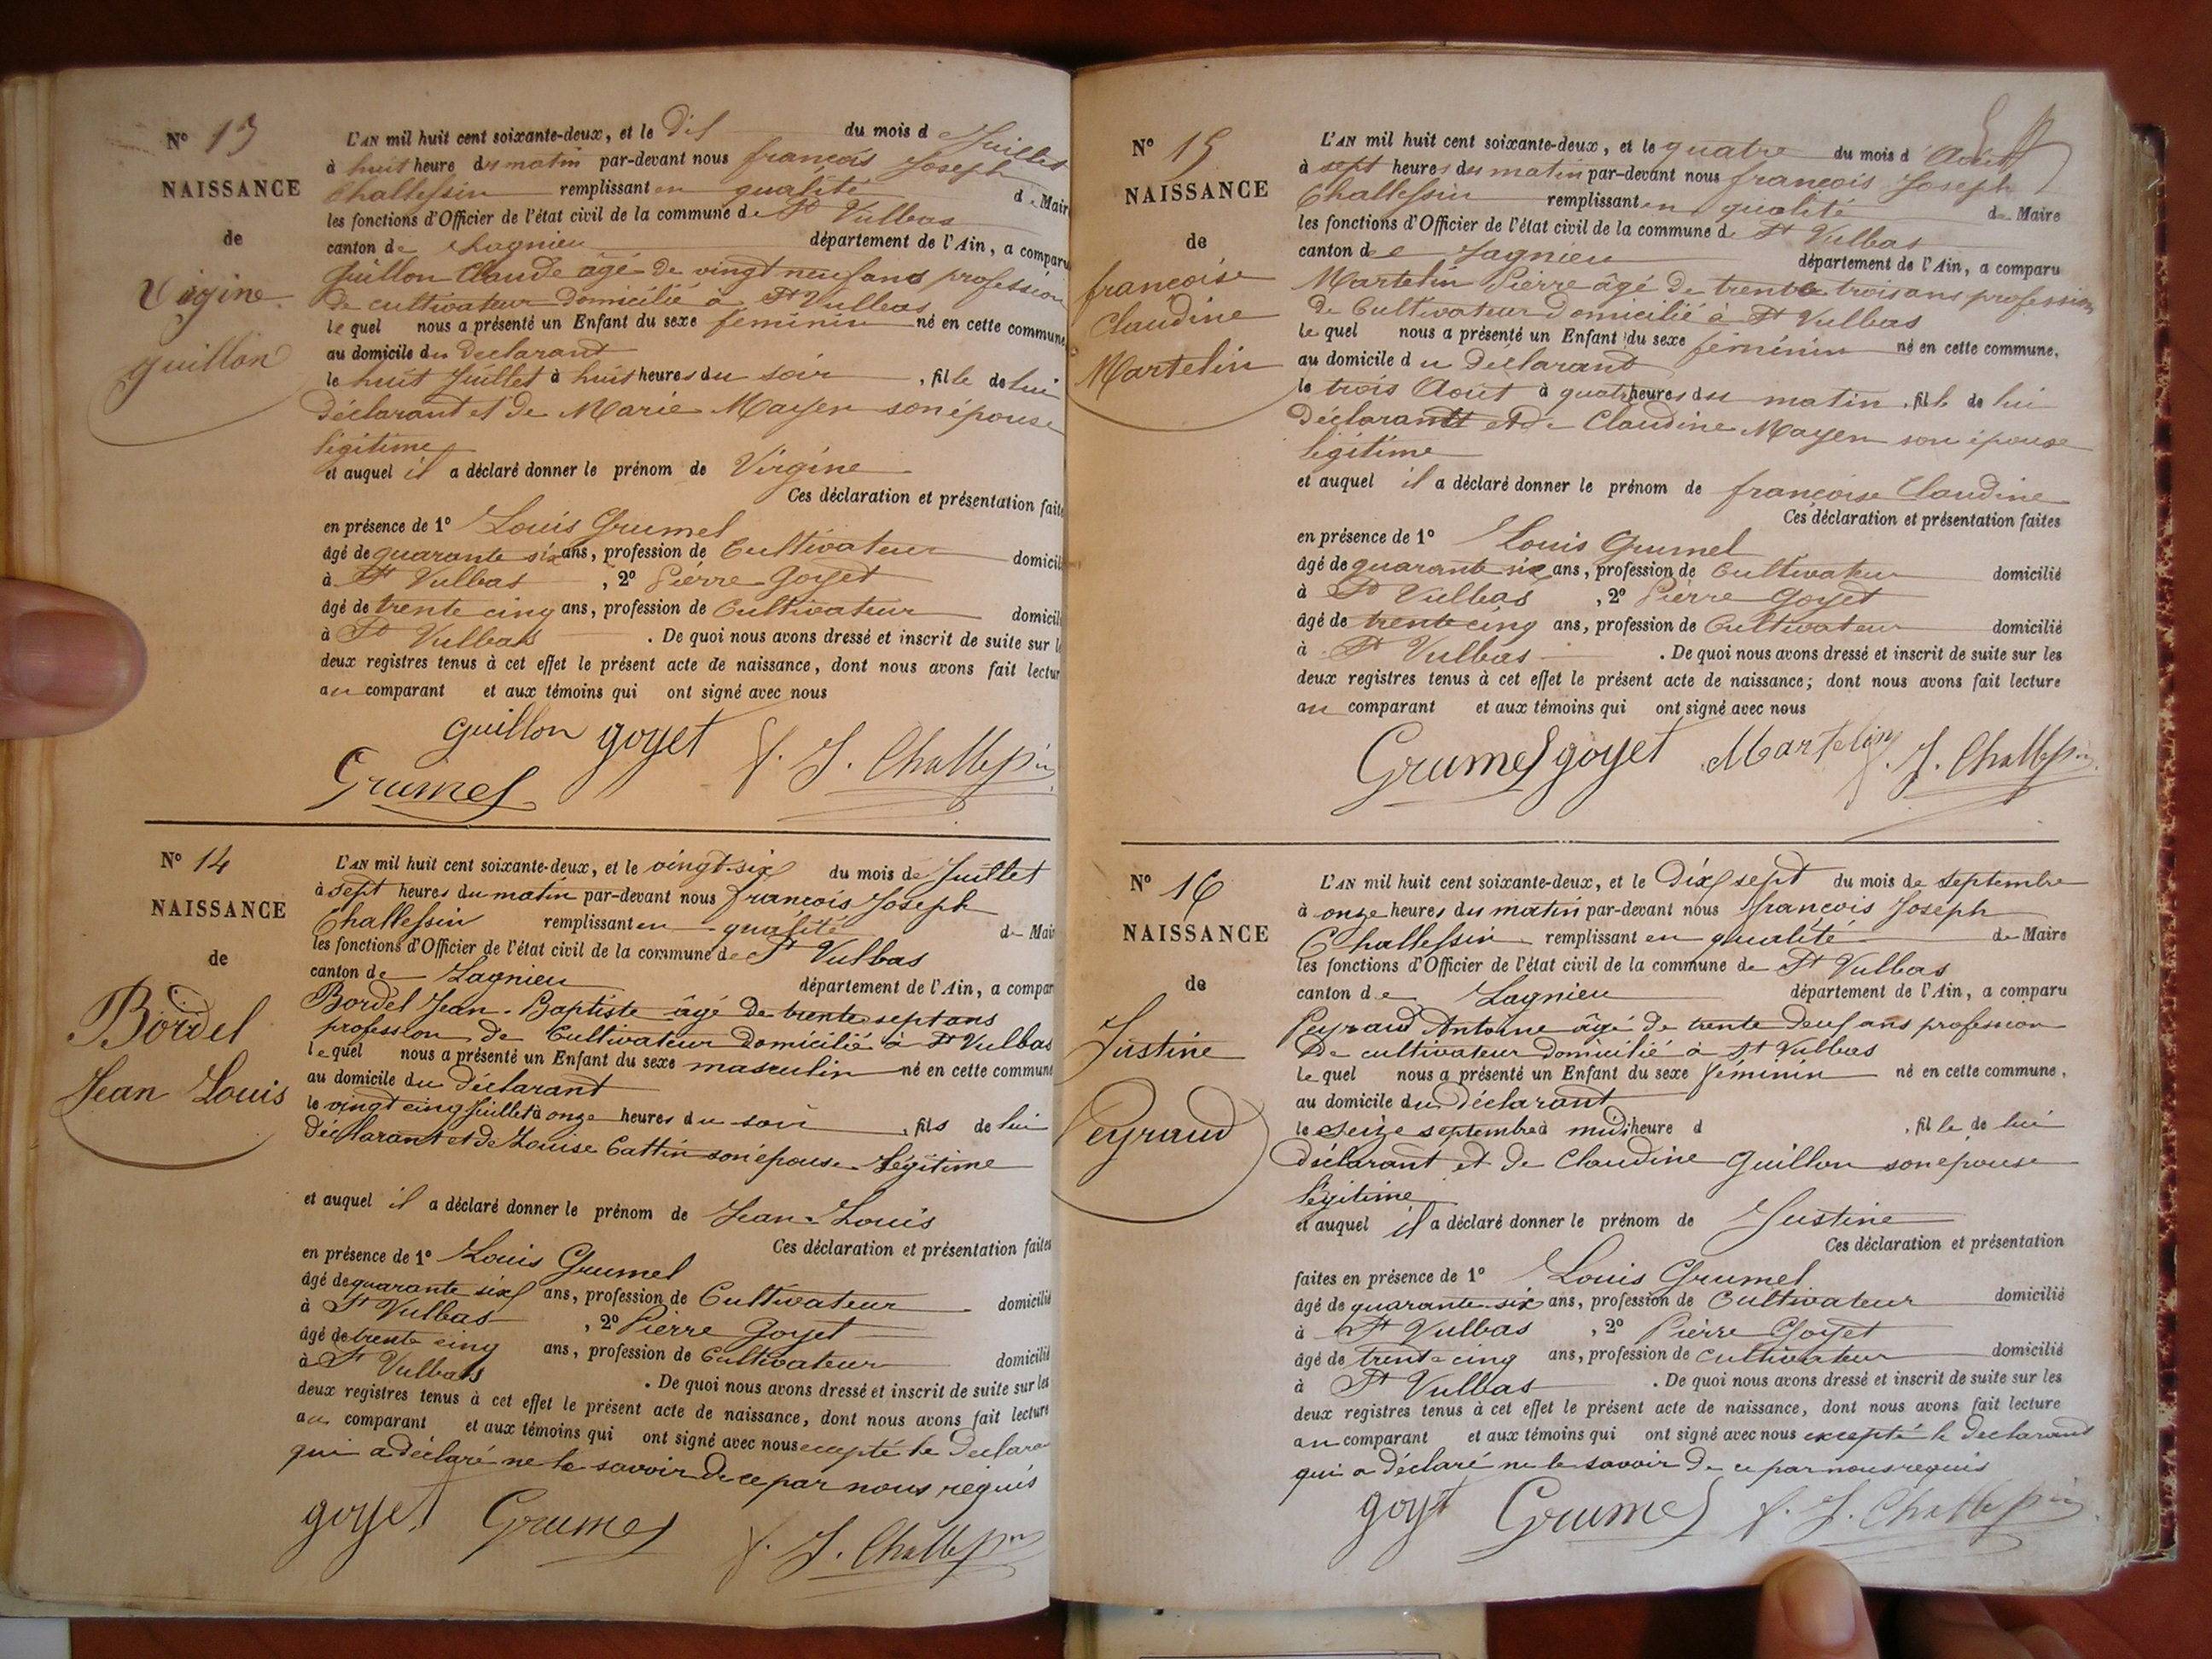 N° 13
NAISSANCE
de
Virgine
guillon
L'AN mil huit cent soixante-deux, et le dix du mois de Juillet
à huit heure du matin par-devant nous françois Joseph
Challessin remplissant en qualité de Mair
les fonctions d'Officier de l'état civil de la commune de St Vulbas
canton de Lagnieu département de l'Ain, a comparu
Guillon Claude âgé de vingt neuf ans profession
de cultivateur domicilié à St Vulbas
le quel nous a présenté un Enfant du sexe féminin né en cette commune
au domicile du déclarant
le huit Juillet à huit heures du soir, fille de lui
déclarant et de Marie Mayen son épouse
légitime
et auquel il a déclaré donner le prénom de Virgine
Ces déclaration et présentation faite
en présence de 1° Louis Grumel
âgé de quarante six ans, profession de Cultivateur domicili
à St Vulbas, 2° Pierre Goyet
âgé de trente cinq ans, profession de Cultivateur domicili
à St Vulbas. De quoi nous avons dressé et inscrit de suite sur le
deux registres tenus à cet effet le présent acte de naissance, dont nous avons fait lectur
au comparant et aux témoins qui ont signé avec nous
Guillon goyet f. J. Challessin
Grumel
N° 14
NAISSANCE
de
Bordel
Jean Louis
L'AN mil huit cent soixante-deux, et le vingt-six du mois de Juillet
à sept heures du matin par-devant nous françois Joseph
Challessin remplissant en qualité de Mair
les fonctions d'Officier de l'état civil de la commune de St Vulbas
canton de Lagnieu département de l'Ain, a compar
Bordel Jean-Baptiste âgé de trente sept ans
profession de Cultivateur domicilié à St Vulbas
le quel nous a présenté un Enfant du sexe masculin né en cette commune
au domicile du déclarant
le vingt cinq Juillet à onze heures du soir, fils de lui
déclarant et de Louise Cattin son épouse légitime
et auquel il a déclaré donner le prénom de Jean-Louis
Ces déclaration et présentation faites
en présence de 1° Louis Grumel
âgé de quarante six ans, profession de Cultivateur domicilié
à St Vulbas, 2° Pierre Goyet
âgé de trente cinq ans, profession de Cultivateur domicilié
à St Vulbas. De quoi nous avons dressé et inscrit de suite sur les
deux registres tenus à cet effet le présent acte de naissance, dont nous avons fait lecture
au comparant et aux témoins qui ont signé avec nous excepté le déclara
qui a déclaré ne le savoir de ce par nous requis
goyet Grumel f. J. Challessin
N° 15
NAISSANCE
de
françoise
Claudine
Martelin
L'AN mil huit cent soixante-deux, et le quatre du mois d'Août
à sept heures du matin par-devant nous françois Joseph
Challessin remplissant en qualité de Maire
les fonctions d'Officier de l'état civil de la commune de St Vulbas
canton de Lagnieu département de l'Ain, a comparu
Martelin Pierre âgé de trente trois ans profession
de Cultivateur domicilié à St Vulbas
le quel nous a présenté un Enfant du sexe féminin né en cette commune,
au domicile du déclarant
le trois Août à quatre heures du matin, fille de lui
déclarant et de Claudine Mayen son épouse
légitime
et auquel il a déclaré donner le prénom de françoise Claudine
Ces déclaration et présentation faites
en présence de 1° Louis Grumel
âgé de quarante six ans, profession de Cultivateur domicilié
à St Vulbas, 2° Pierre Goyet
âgé de trente cinq ans, profession de Cultivateur domicilié
à St Vulbas. De quoi nous avons dressé et inscrit de suite sur les
deux registres tenus à cet effet le présent acte de naissance; dont nous avons fait lecture
au comparant et aux témoins qui ont signé avec nous
Grumel goyet Martelin f. J. Challessin
N° 16
NAISSANCE
de
Justine
Peyraud
L'AN mil huit cent soixante-deux, et le dix sept du mois de septembre
à onze heures du matin par-devant nous françois Joseph
Challessin remplissant en qualité de Maire
les fonctions d'Officier de l'état civil de la commune de St Vulbas
canton de Lagnieu département de l'Ain, a comparu
Peyraud Antoine âgé de trente deux ans profession
de cultivateur domicilié à St Vulbas
le quel nous a présenté un Enfant du sexe féminin né en cette commune,
au domicile du déclarant
le seize septembre à midi heure d, fille de lui
déclarant et de Claudine Guillon son épouse
légitime
et auquel il a déclaré donner le prénom de Justine
Ces déclaration et présentation
faites en présence de 1° Louis Grumel
âgé de quarante six ans, profession de Cultivateur domicilié
à St Vulbas, 2° Pierre Goyet
âgé de trente cinq ans, profession de cultivateur domicilié
à St Vulbas. De quoi nous avons dressé et inscrit de suite sur les
deux registres tenus à cet effet le présent acte de naissance, dont nous avons fait lecture
au comparant et aux témoins qui ont signé avec nous excepté le déclarant
qui a déclaré ne le savoir de ce par nous requis
goyt Grumel f. J. Challessin